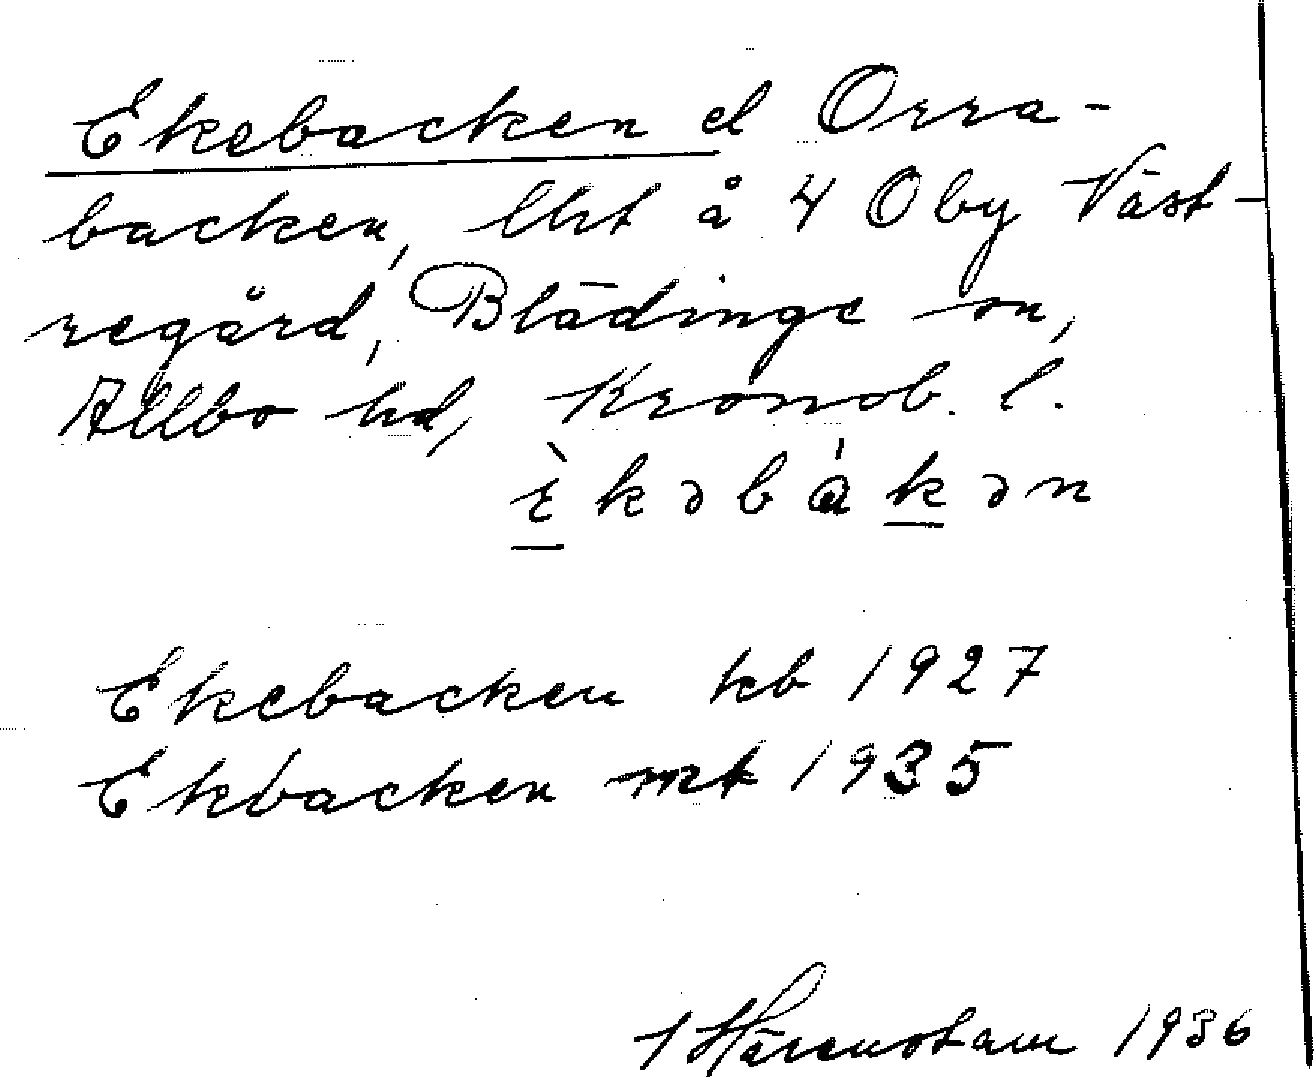 Ekebacken el Orra-
backen, lht å 4 Oby Väst-
regård, Blädinge sn,
Allbo hd, Kronob. l.
èkəbákən
Ekebacken kb 1927
Ekbacken mk 1935
Härenstam 1936